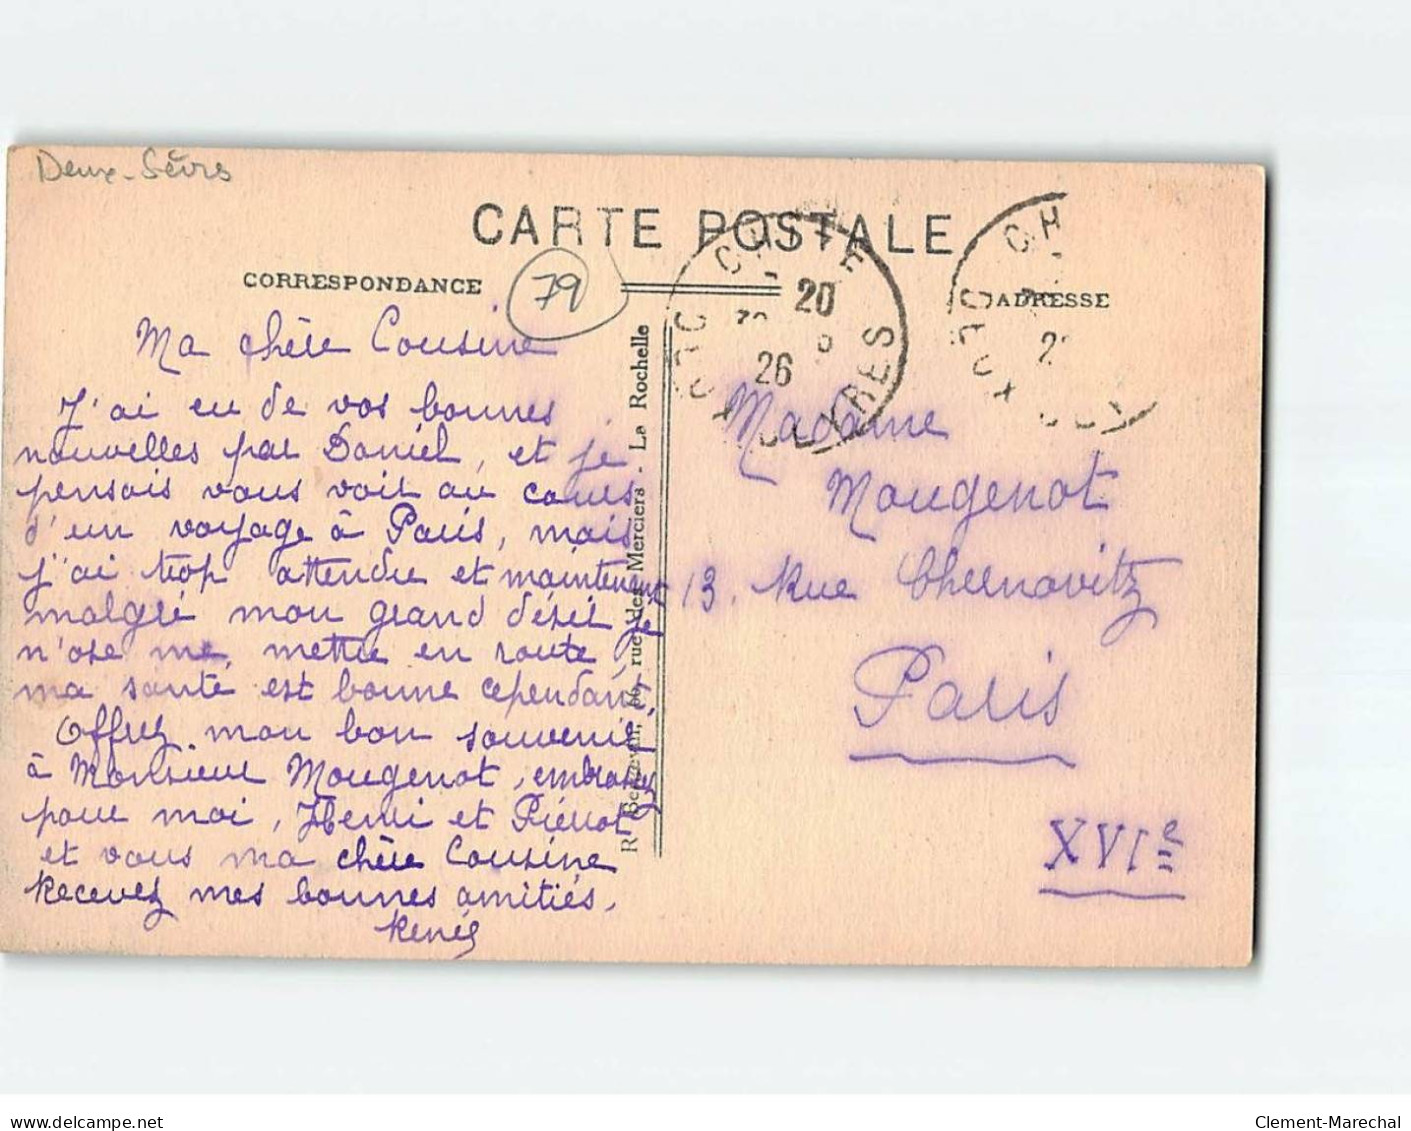 Deux-Sèvrs
CARTE POSTALE
CORRESPONDANCE
79
ADRESSE
Ma chère Cousine
J'ai eu de vos bonnes
nouvelles par Daniel, et je
pensais vous voir au cours
d'un voyage à Paris, mais
j'ai trop attendre et maintenent
malgré mon grand désir je
n'ose me mettre en route,
ma santé est bonne cependant,
Offrez mon bon souvenir
à Monsieur Mougenot, embrassez
pour moi, Henri et Pierrot
et vous ma chère Cousine
Recevez mes bonnes amitiés,
Renée
R. Bergevin, rue des Merciers - La Rochelle
20
26
SEVRES
CH
Madame
Mougenot
13, Rue Chernovitz
Paris
XVIe
delcampe.net
Clement-Marechal